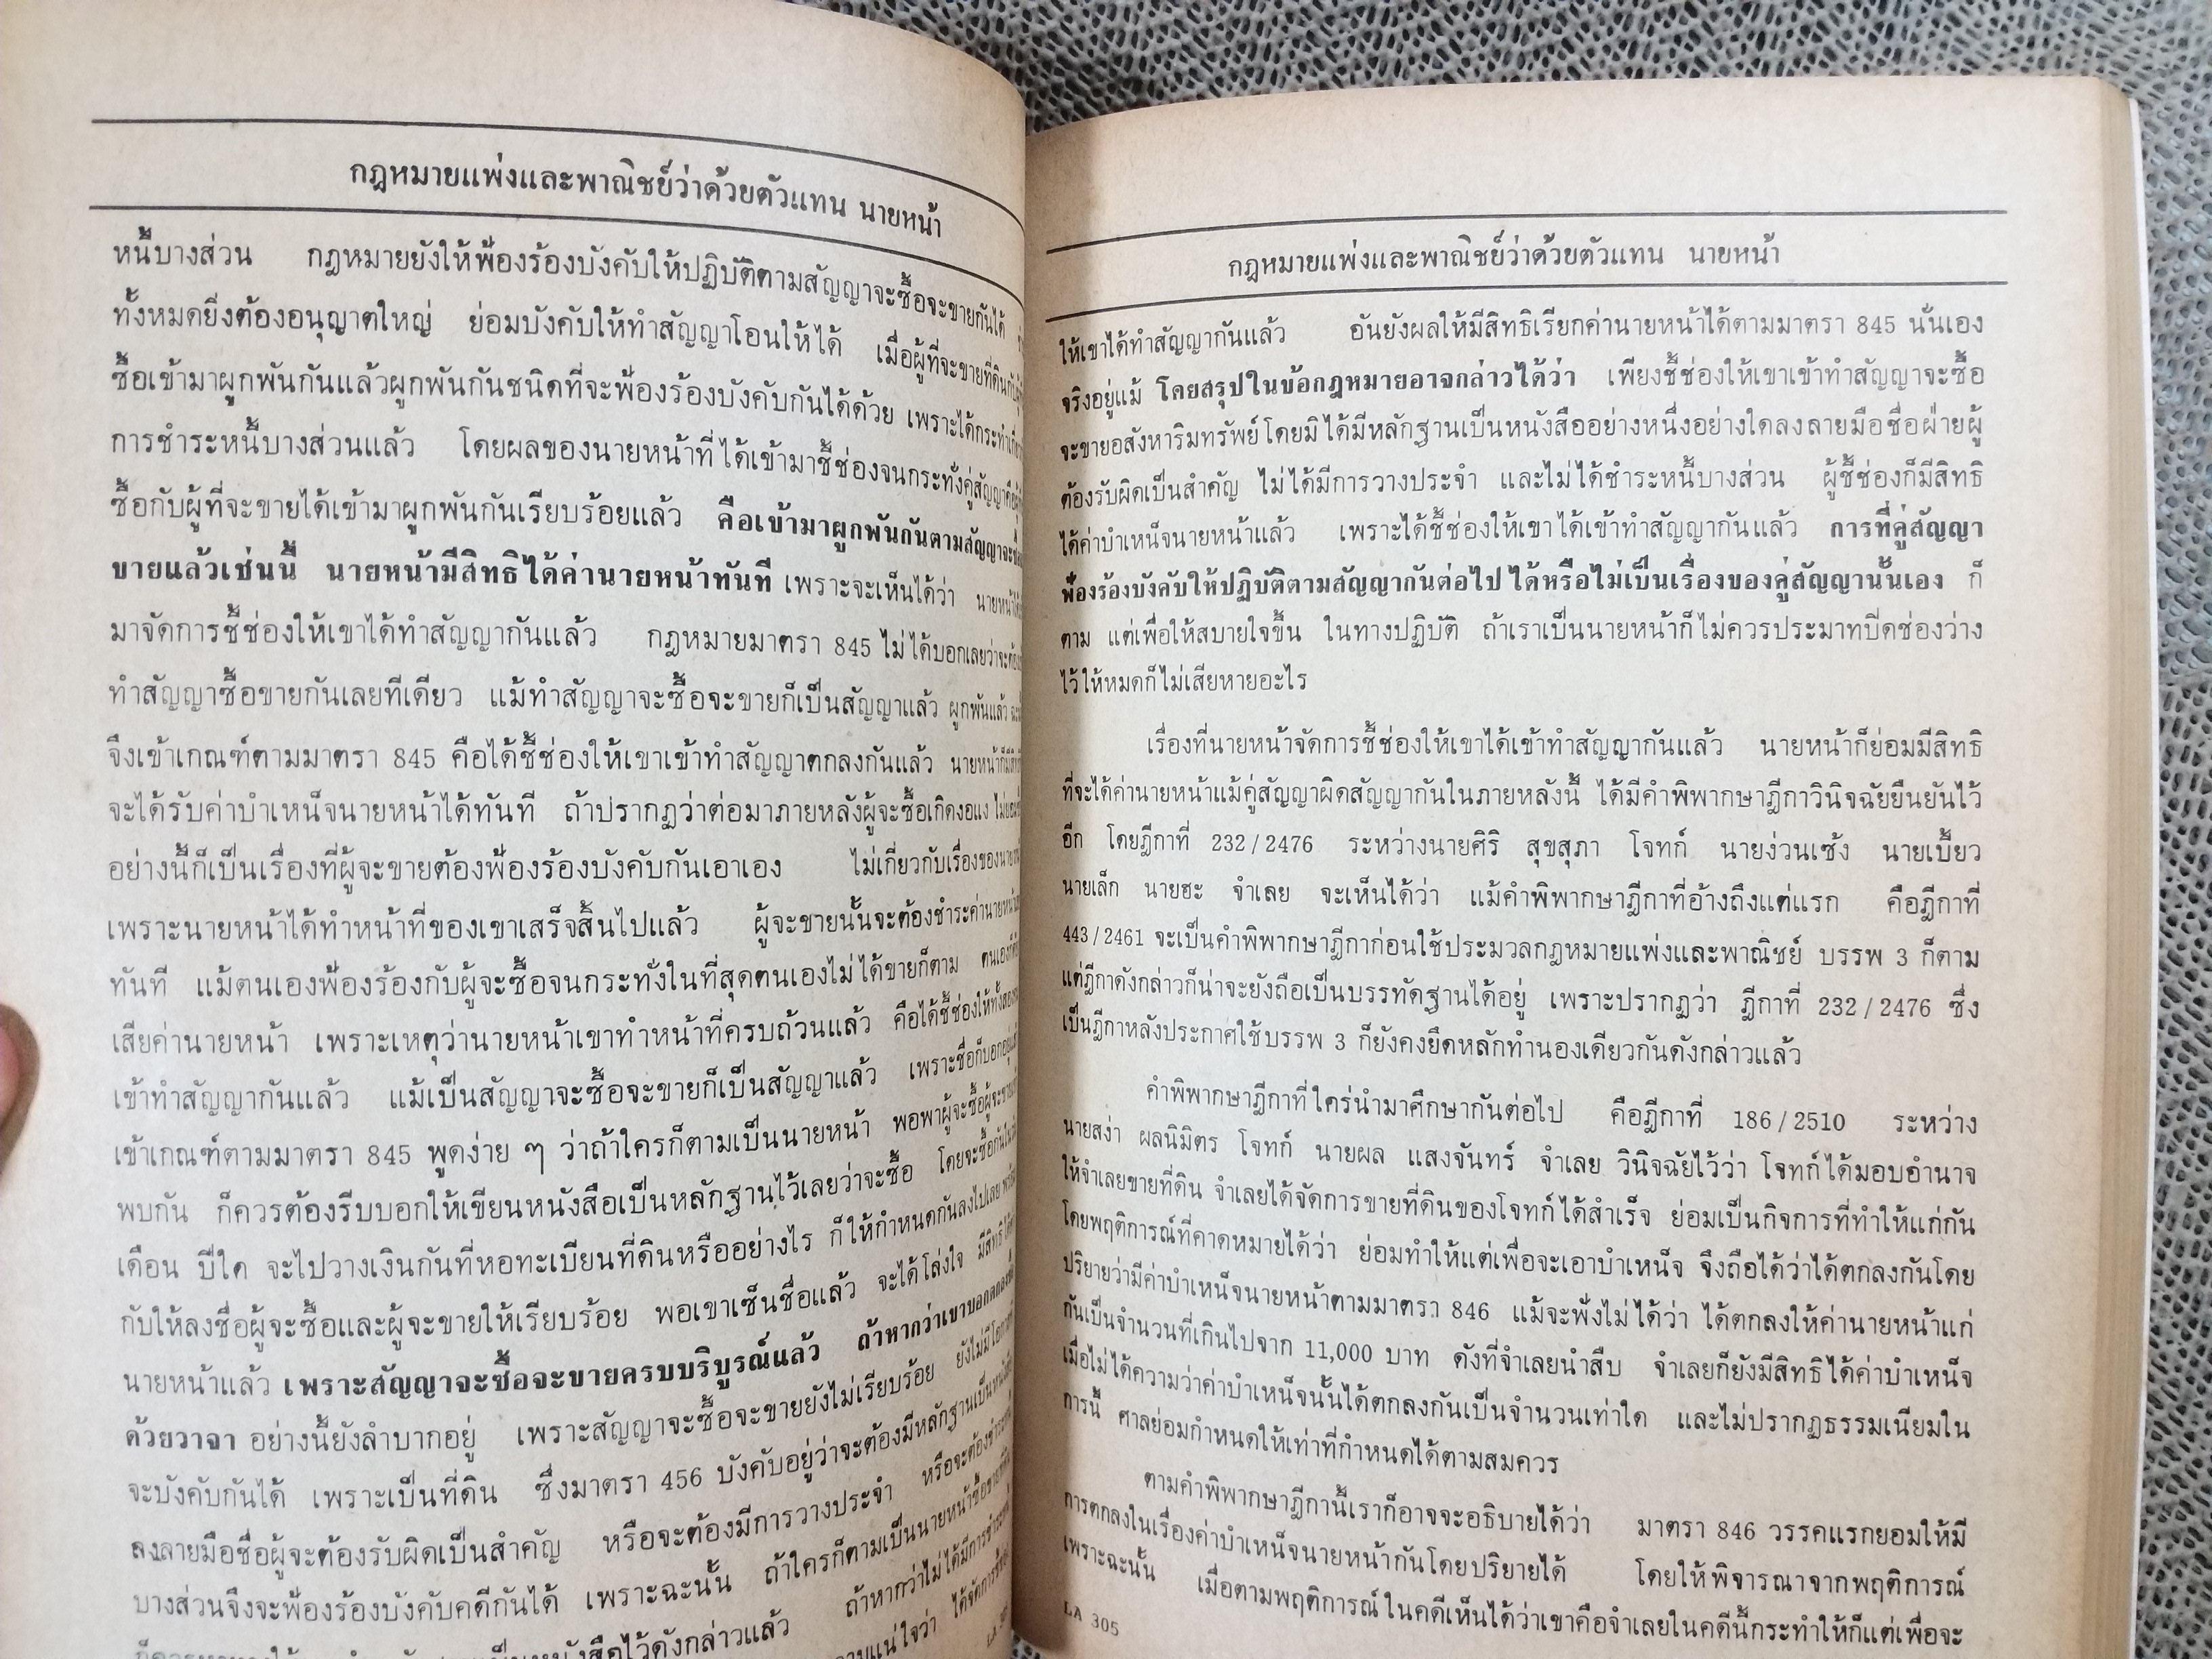 กฎหมายแพ่งและพาณิชย์ว่าด้วยตัวแทน นายหน้า
หนี้บางส่วน กฎหมายยังให้ฟ้องร้องบังคับให้ปฏิบัติตามสัญญาจะซื้อจะขายกันได้
ทั้งหมดยิ่งต้องอนุญาตใหญ่ ย่อมบังคับให้ทำสัญญาโอนให้ได้ เมื่อผู้ที่จะขายที่ดินกับ
ซื้อเข้ามาผูกพันกันแล้วผูกพันกันชนิดที่จะฟ้องร้องบังคับกันได้ด้วย เพราะได้กระทำ
การชำระหนี้บางส่วนแล้ว โดยผลของนายหน้าที่ได้เข้ามาชี้ช่องจนกระทั่งคู่สัญญา
ซื้อกับผู้ที่จะขายได้เข้ามาผูกพันกันเรียบร้อยแล้ว คือเข้ามาผูกพันกันตามสัญญา
ขายแล้วเช่นนี้ นายหน้ามีสิทธิได้ค่านายหน้าทันที เพราะจะเห็นได้ว่า
มาจัดการชี้ช่องให้เขาได้ทำสัญญากันแล้ว กฎหมายมาตรา 845 ไม่ได้บอกเลยว่าจะต้อง
ทำสัญญาซื้อขายกันเลยทีเดียว แม้ทำสัญญาจะซื้อจะขายก็เป็นสัญญาแล้ว ผูกพันแล้ว
จึงเข้าเกณฑ์ตามมาตรา 845 คือได้ชี้ช่องให้เขาเข้าทำสัญญาตกลงกันแล้ว
จะได้รับค่าบำเหน็จนายหน้าได้ทันที ถ้าปรากฏว่าต่อมาภายหลังผู้จะซื้อเกิดงอแง
อย่างนี้ก็เป็นเรื่องที่ผู้จะขายต้องฟ้องร้องบังคับกันเอาเอง ไม่เกี่ยวกับเรื่องของ
เพราะนายหน้าได้ทำหน้าที่ของเขาเสร็จสิ้นไปแล้ว ผู้จะขายนั้นจะต้องชำระค่านายหน้า
ทันที แม้ตนเองฟ้องร้องกับผู้จะซื้อจนกระทั่งในที่สุดตนเองไม่ได้ขายก็ตาม
เสียค่านายหน้า เพราะเหตุว่านายหน้าเขาทำหน้าที่ครบถ้วนแล้ว คือได้ชี้ช่องให้
เข้าทำสัญญากันแล้ว แม้เป็นสัญญาจะซื้อจะขายก็เป็นสัญญาแล้ว เพราะชื่อก็บอก
เข้าเกณฑ์ตามมาตรา 845 พูดง่าย ๆ ว่าถ้าใครก็ตามเป็นนายหน้า พอพาผู้จะซื้อผู้จะขาย
พบกัน ก็ควรต้องรีบบอกให้เขียนหนังสือเป็นหลักฐานไว้เลยว่าจะซื้อ โดยจะซื้อกัน
เดือน ปีใด จะไปวางเงินกันที่หอทะเบียนที่ดินหรืออย่างไร ก็ให้กำหนดกันลงไปเลย
กับให้ลงชื่อผู้จะซื้อและผู้จะขายให้เรียบร้อย พอเขาเซ็นชื่อแล้ว จะได้โล่งใจ มีสิทธิ
นายหน้าแล้ว เพราะสัญญาจะซื้อจะขายครบบริบูรณ์แล้ว ถ้าหากว่าเขาบอกตกลง
ด้วยวาจา อย่างนี้ยังลำบากอยู่ เพราะสัญญาจะซื้อจะขายยังไม่เรียบร้อย ยังไม่มี
จะบังคับกันได้ เพราะเป็นที่ดิน ซึ่งมาตรา 456 บังคับอยู่ว่าจะต้องมีหลักฐานเป็น
ลงลายมือชื่อผู้จะต้องรับผิดเป็นสำคัญ หรือจะต้องมีการวางประจำ หรือจะต้องชำระ
บางส่วนจึงจะฟ้องร้องบังคับคดีกันได้ เพราะฉะนั้น ถ้าใครก็ตามเป็นนายหน้าซื้อขาย
เป็นหนังสือไว้ดังกล่าวแล้ว ถ้าหากว่าไม่ได้มีการชำระ
แน่ใจว่า ได้จัดการชี้ช่อง
กฎหมายแพ่งและพาณิชย์ว่าด้วยตัวแทน นายหน้า
ให้เขาได้ทำสัญญากันแล้ว อันยังผลให้มีสิทธิเรียกค่านายหน้าได้ตามมาตรา 845 นั่นเอง
จริงอยู่แม้ โดยสรุปในข้อกฎหมายอาจกล่าวได้ว่า เพียงชี้ช่องให้เขาเข้าทำสัญญาจะซื้อ
จะขายอสังหาริมทรัพย์โดยมิได้มีหลักฐานเป็นหนังสืออย่างหนึ่งอย่างใดลงลายมือชื่อฝ่ายผู้
ต้องรับผิดเป็นสำคัญ ไม่ได้มีการวางประจำ และไม่ได้ชำระหนี้บางส่วน ผู้ชี้ช่องก็มีสิทธิ
ได้ค่าบำเหน็จนายหน้าแล้ว เพราะได้ชี้ช่องให้เขาได้เข้าทำสัญญากันแล้ว การที่คู่สัญญา
ฟ้องร้องบังคับให้ปฏิบัติตามสัญญากันต่อไปได้หรือไม่เป็นเรื่องของคู่สัญญานั้นเอง ก็
ตาม แต่เพื่อให้สบายใจขึ้น ในทางปฏิบัติ ถ้าเราเป็นนายหน้าก็ไม่ควรประมาทปิดช่องว่าง
ไว้ให้หมดก็ไม่เสียหายอะไร
เรื่องที่นายหน้าจัดการชี้ช่องให้เขาได้เข้าทำสัญญากันแล้ว นายหน้าก็ย่อมมีสิทธิ
ที่จะได้ค่านายหน้าแม้คู่สัญญาผิดสัญญากันในภายหลังนี้ ได้มีคำพิพากษาฎีกาวินิจฉัยยืนยันไว้
อีก โดยฎีกาที่ 232/2476 ระหว่างนายศิริ สุขสุภา โจทก์ นายง่วนเซ้ง นายเบี้ยว
นายเล็ก นายฮะ จำเลย จะเห็นได้ว่า แม้คำพิพากษาฎีกาที่อ้างถึงแต่แรก คือฎีกาที่
443/2461 จะเป็นคำพิพากษาฎีกาก่อนใช้ประมวลกฎหมายแพ่งและพาณิชย์ บรรพ 3 ก็ตาม
แต่ฎีกาดังกล่าวก็น่าจะยังถือเป็นบรรทัดฐานได้อยู่ เพราะปรากฏว่า ฎีกาที่ 232/2476 ซึ่ง
เป็นฎีกาหลังประกาศใช้บรรพ 3 ก็ยังคงยึดหลักทำนองเดียวกันดังกล่าวแล้ว
คำพิพากษาฎีกาที่ใคร่นำมาศึกษากันต่อไป คือฎีกาที่ 186/2510 ระหว่าง
นายสง่า ผลนิมิตร โจทก์ นายผล แสงจันทร์ จำเลย วินิจฉัยไว้ว่า โจทก์ได้มอบอำนาจ
ให้จำเลยขายที่ดิน จำเลยได้จัดการขายที่ดินของโจทก์ได้สำเร็จ ย่อมเป็นกิจการที่ทำให้แก่กัน
โดยพฤติการณ์ที่คาดหมายได้ว่า ย่อมทำให้แต่เพื่อจะเอาบำเหน็จ จึงถือได้ว่าได้ตกลงกันโดย
ปริยายว่ามีค่าบำเหน็จนายหน้าตามมาตรา 846 แม้จะฟังไม่ได้ว่า ได้ตกลงให้ค่านายหน้าแก่
กันเป็นจำนวนที่เกินไปจาก 11,000 บาท ดังที่จำเลยนำสืบ จำเลยก็ยังมีสิทธิได้ค่าบำเหน็จ
เมื่อไม่ได้ความว่าค่าบำเหน็จนั้นได้ตกลงกันเป็นจำนวนเท่าใด และไม่ปรากฏธรรมเนียมใน
การนี้ ศาลย่อมกำหนดให้เท่าที่กำหนดได้ตามสมควร
ตามคำพิพากษาฎีกานี้เราก็อาจจะอธิบายได้ว่า มาตรา 846 วรรคแรกยอมให้มี
การตกลงในเรื่องค่าบำเหน็จนายหน้ากันโดยปริยายได้ โดยให้พิจารณาจากพฤติการณ์
เพราะฉะนั้น เมื่อตามพฤติการณ์ในคดีเห็นได้ว่าเขาคือจำเลยในคดีนี้กระทำให้ก็แต่เพื่อจะ
LA 305